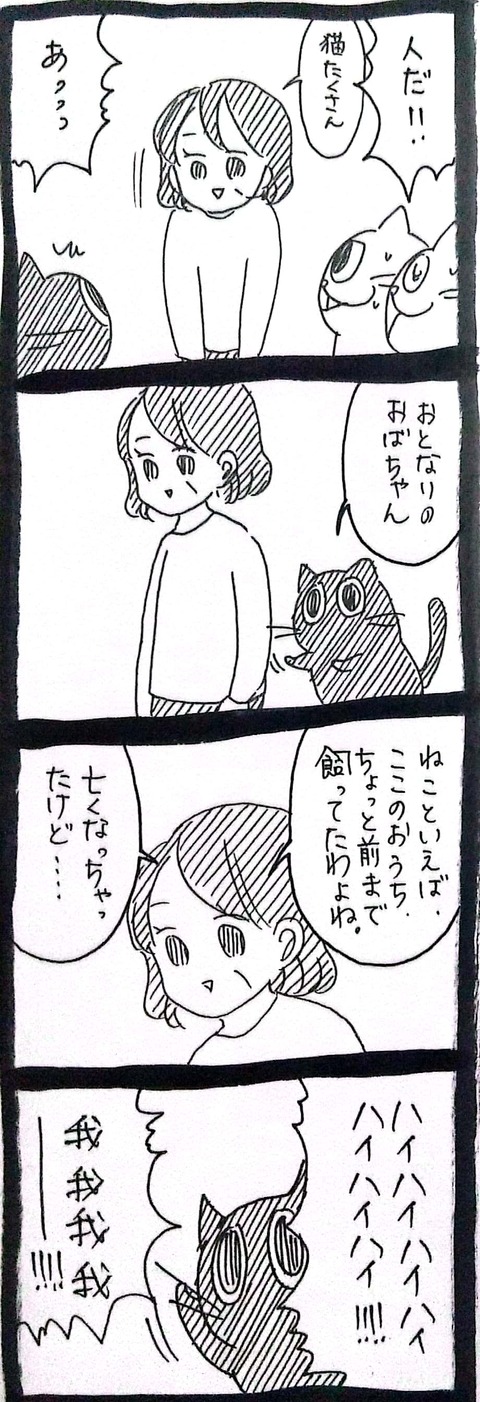 人だ!!
猫たくさん
あっっっ
おとなりの
おばちゃん
ねこといえば、
ここのおうち、
ちょっと前まで
飼ってたわよね。
亡くなっちゃっ
たけど……
ハイハイハイハイ
ハイハイハイ!!!!
我我我我
―!!!!